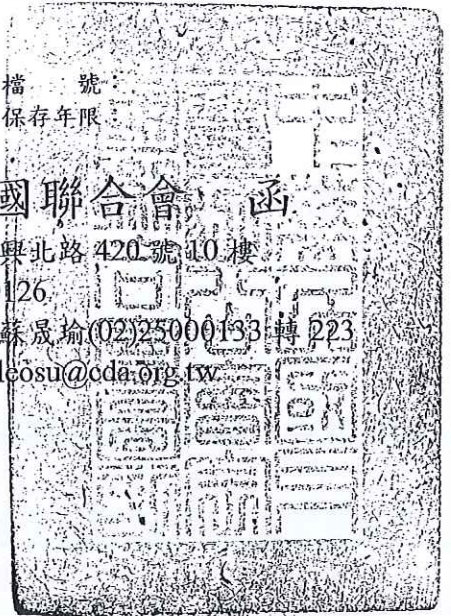 檔 號：
保存年限：
國聯合會 函
興北路 420 號 10 樓
126
蘇晟瑜(02)25000133 轉 223
leosu@cda.org.tw